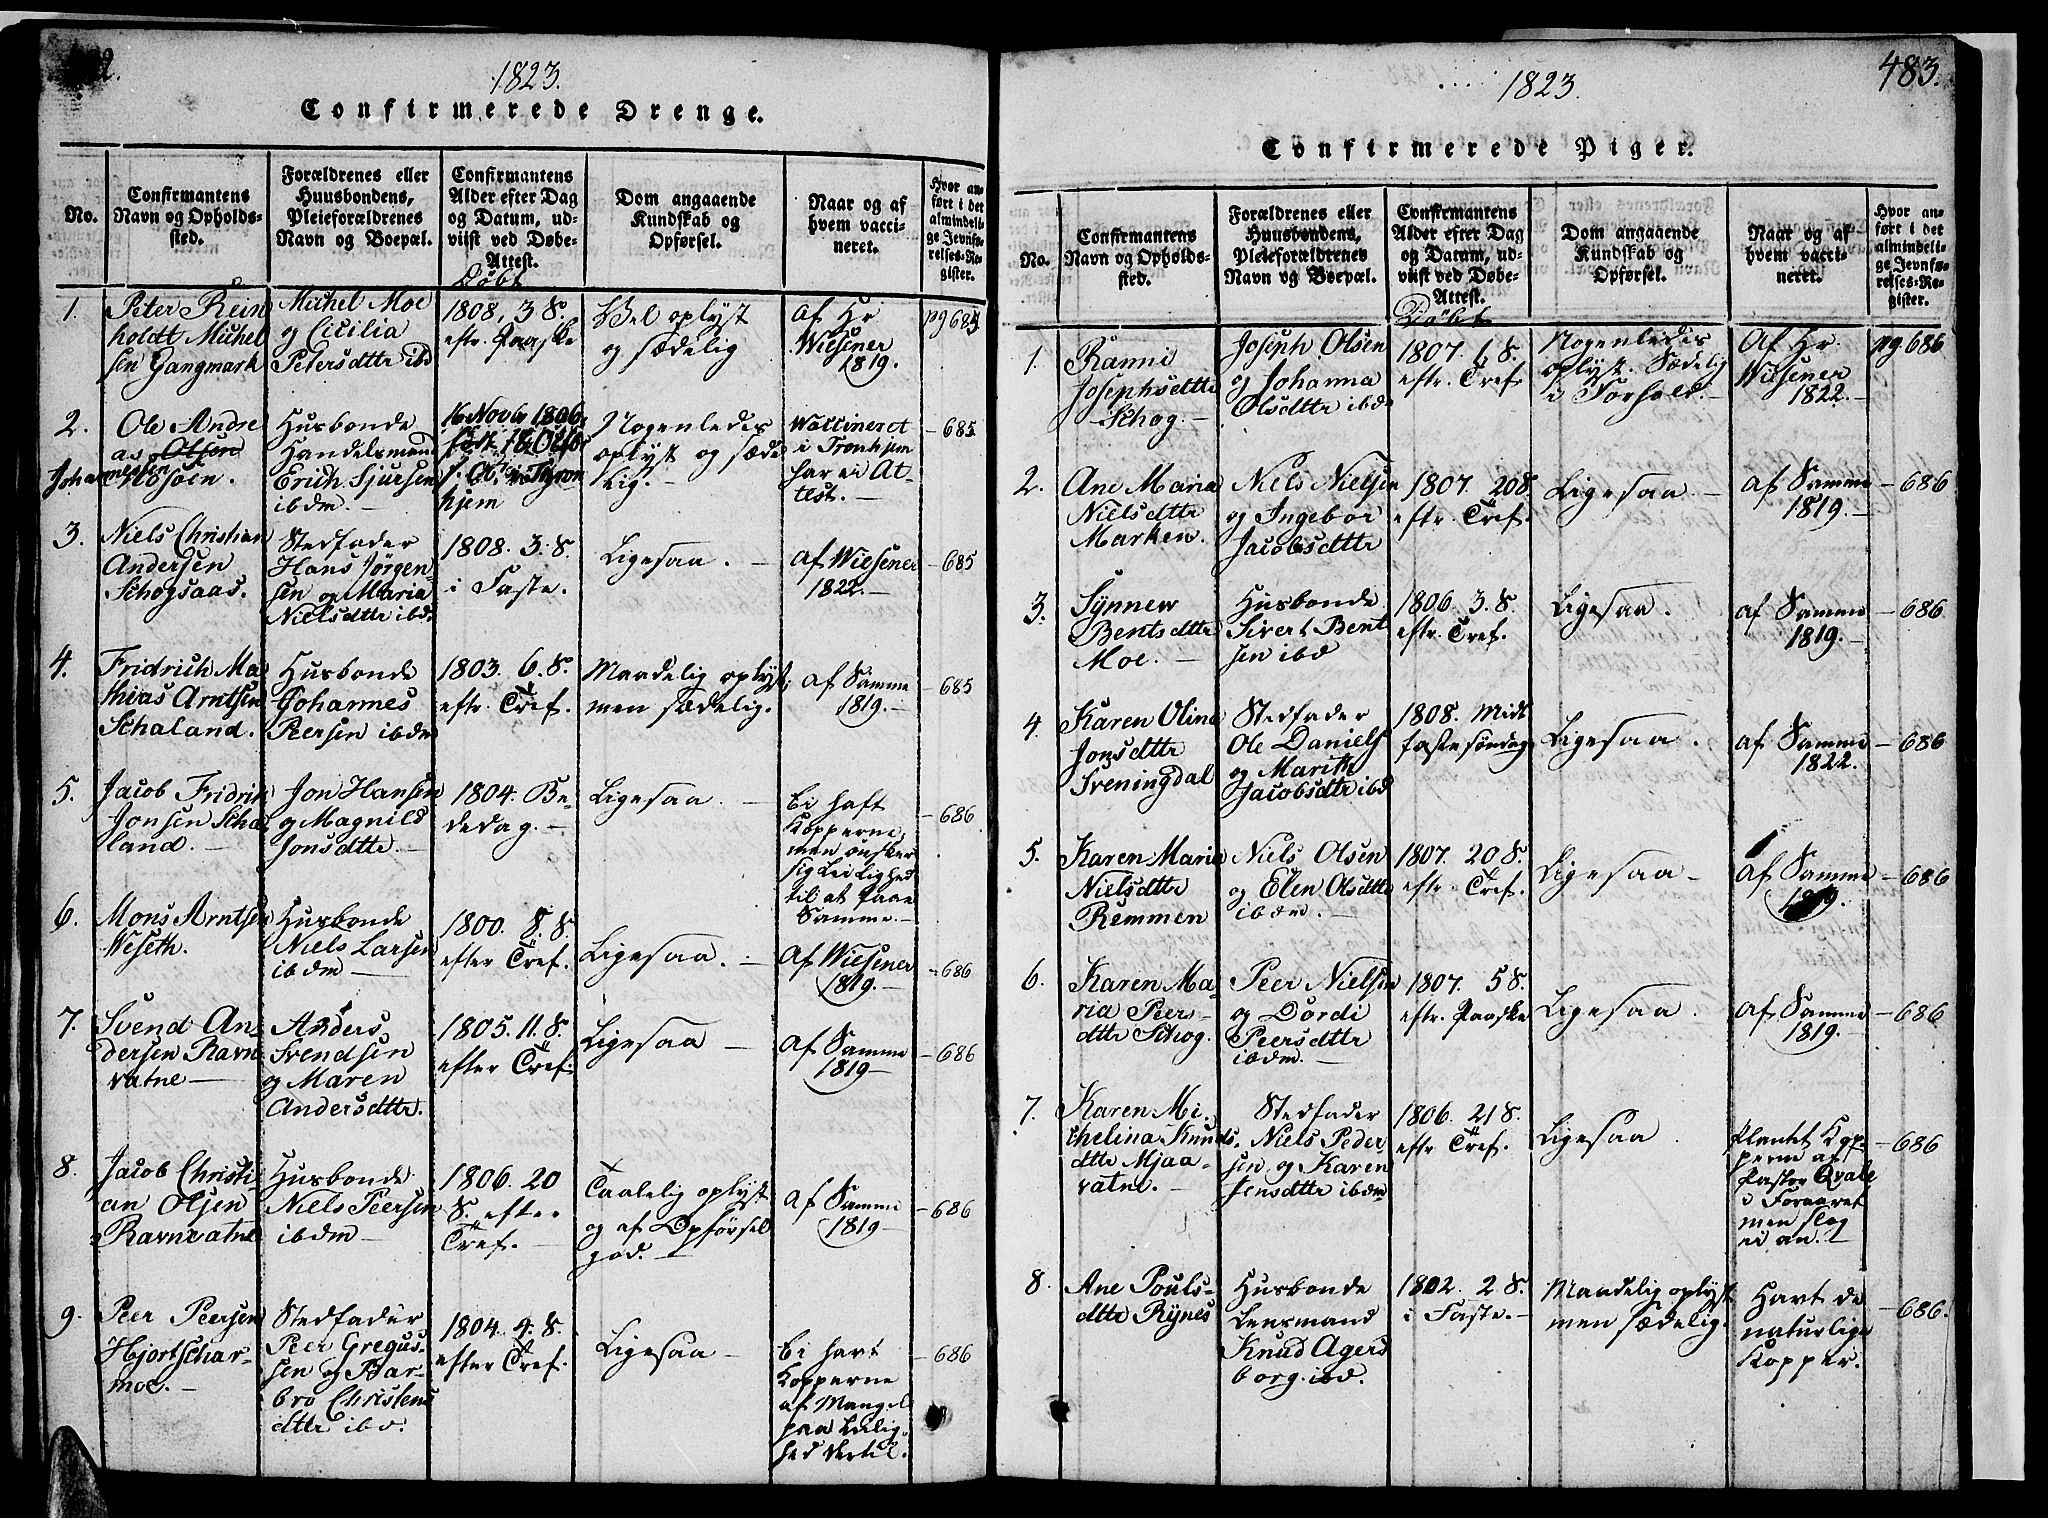 1823.
Confirmerede Drenge.
No.
Confirmantens
Navn og Opholds-
sted.
Forældrenes eller
Huusbondens,
Pleieforældrenes
Navn og Boepæl.
Confirmantens
Alder efter Dag
og Datum, ud-
viist ved Døbe-
Attest.
Døbt
Dom angaaende
Kundskab og
Opførsel.
Naar og af
hvem vacci-
neret.
Hvor an-
ført i det
almindeli-
ge Jevnfø-
relses-Re-
gister.
1.
Peter Rein
holdt Michel
sen Gangmark
Michel Moe
og Cicilia
Petersdttr ibd
1808, 3 S.
eftr. Paaske
Vel oplyst
og sædelig
Af Hr
Wiesener
1819.
pg 685
2.
Ole Andre
as Olsen
Johannessen
Mosøen.
Husbonde
Handelsmand
Erich Sjursen
ibdm. –
16 Novbr 1806
hjem
Nogenledes
oplyst og sæde
lig. –
Waccineret
i Tronhjem
har ei At-
test. –
– 685
3.
Niels Christian
Andersen
Schogsaas.
Stedfader
Hans Jørgen-
sen og Maria
Nielsdttr ibd.
1808. 3. S.
i Faste.
Ligesaa. –
Af Wiesener
1822. –
– 685
4.
Fridrich Ma-
thias Arntsen
Schaland.
Husbonde
Johannes
Peersen ibdm
1803. 6. S.
eftr. Tref.
Maadelig oplyst,
men sædelig.
af Samme
1819. –
– 685
5.
Jacob Fridrik
Jonsen Scha-
land. –
Jon Hansen
og Magnild
Jonsdttr. –
1804. Be-
dedag. –
Ligesaa. –
Ei haft
Kopperne,
men ønsker
sig Leilighed
til at faae
Samme. –
– 686
6.
Mons Arntsen
Weseth.
Husbonde
Niels Larsen
ibdm –
1800. 8. S.
efter Tref.
Ligesaa. –
Af Wiesener
1819. –
– 686
7.
Svend An-
dersen Ravn
vatne –
Anders
Svendsen
og Maren
Andersdttr.
1805. 11. S.
efter Tref.
Ligesaa –
Af Samme
1819 –
– 686
8.
Jacob Christi-
an Olsen
Ravnvatne
Husbonde
Niels Peersen
ibdm –
1806. 20
S. efter
Tref. –
Taalelig oplyst
og af Opførsel
god. –
Af Samme
1819 –
– 686
9.
Peer Peersen
Hjortschar-
moe. –
Stedfader
Peer Gregus-
sen og Bar-
bro Christens
dttr ibd.
1804. 4. S.
efter Tref.
Ligesaa –
Ei havt
Kopperne
af Mangel
paa Leilig-
hed dertil.
– 686
483.
1823.
Confirmerede Piger.
No.
Confirmantens
Navn og Opholds-
sted.
Forældrenes eller
Huusbondens,
Pleieforældrenes
Navn og Boepæl.
Confirmantens
Alder efter Dag
og Datum, ud-
viist ved Døbe-
Attest.
Døbt
Dom angaaende
Kundskab og
Opførsel.
Naar og af
hvem vacci-
neret.
Hvor an-
ført i det
almindeli-
ge Jevnfø-
relses-Re-
gister.
1.
Ranni
Josephsdttr
Schog –
Joseph Olsen
og Johanna
Olsdttr ibdm
1807. 6 S.
eftr. Tref.
Nogenledes
oplyst. Sædelig
i Forhold. –
Af Hr.
Wiesener
1822. –
pg. 686
2.
Ane Maria
Nielsdttr
Marken.
Niels Nielsen
og Ingebor
Jacobsdttr
1807. 20 S.
eftr. Tref.
Ligesaa –
af Samme
1819. –
– 686
3.
Synnew
Bentsdttr
Moe. –
Husbonde
Sivert Bent
sen ibd
1806. 3. S.
eftr. Tref.
Ligesaa.
af Samme
1819. –
– 686
4.
Karen Olina
Jonsdttr
Sveningdal
Stedfader
Ole Daniels
og Marith
Jacobsdttr ibd
1808. Midt
fastesøndag
Ligesaa.
af Samme
1822. –
– 686
5.
Karen Maria
Nielsdttr
Remmen
Niels Olsen
og Elen Olsdttr
ibdm. –
1807. 20 S.
eftr. Tref.
Ligesaa –
Af Samme
1819.
– 686
6.
Karen Ma-
ria Peers-
dttr Schog.
Peer Nielsen
og Dordi
Peersdttr
ibdm. –
1807. 5 S.
eftr. Paaske
Ligesaa.
Af Samme
1819. –
– 686
7.
Karen Mi-
chelina Knuds-
dttr Mjaa-
vatne. –
Stedfader
Niels Peder
sen og Karen
Jensdttr ibdm
1806. 21 S.
eftr Tref.
Ligesaa
Plantet Kop-
perne af
Pastor Qvale
i Foraaret
men slog
ei an. –
– 686
8.
Ane Pouls-
dttr Rynes
Husbonde
Lensmand
Knud Agers
borg. ibd.
1802. 2 S.
i Faste. –
Maadelig oplyst
men sædelig.
Havt de
naturlige
Kopper.
– 686.